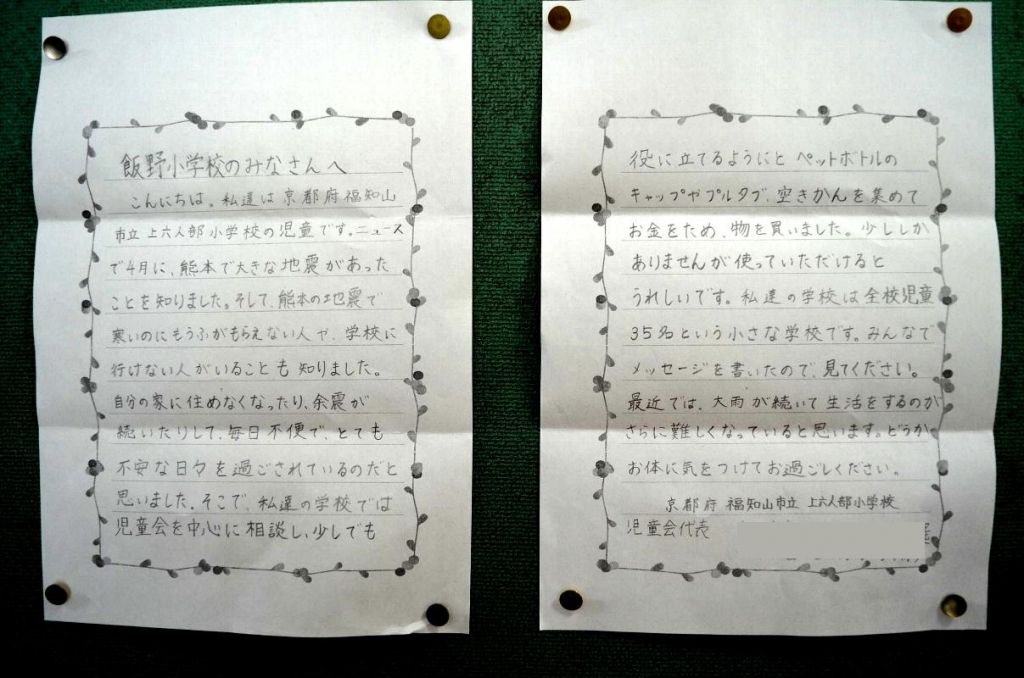 飯野小学校のみなさんへ
こんにちは。私達は京都府福知山
市立上六人部小学校の児童です。ニュース
で4月に、熊本で大きな地震があった
ことを知りました。そして、熊本の地震で
寒いのにもうふがもらえない人や、学校に
行けない人がいることも知りました。
自分の家に住めなくなったり、余震が
続いたりして、毎日不便で、とても
不安な日々を過ごされているのだと
思いました。そこで、私達の学校では
児童会を中心に相談し、少しでも
役に立てるようにと ペットボトルの
キャップやプルタブ、空きかんを集めて
お金をため、物を買いました。少ししか
ありませんが使っていただけると
うれしいです。私達の学校は全校児童
35名という小さな学校です。みんなで
メッセージを書いたので、見てください。
最近では、大雨が続いて生活をするのが
さらに難しくなっていると思います。どうか
お体に気をつけてお過ごしください。
京都府 福知山市立 上六人部小学校
児童会代表